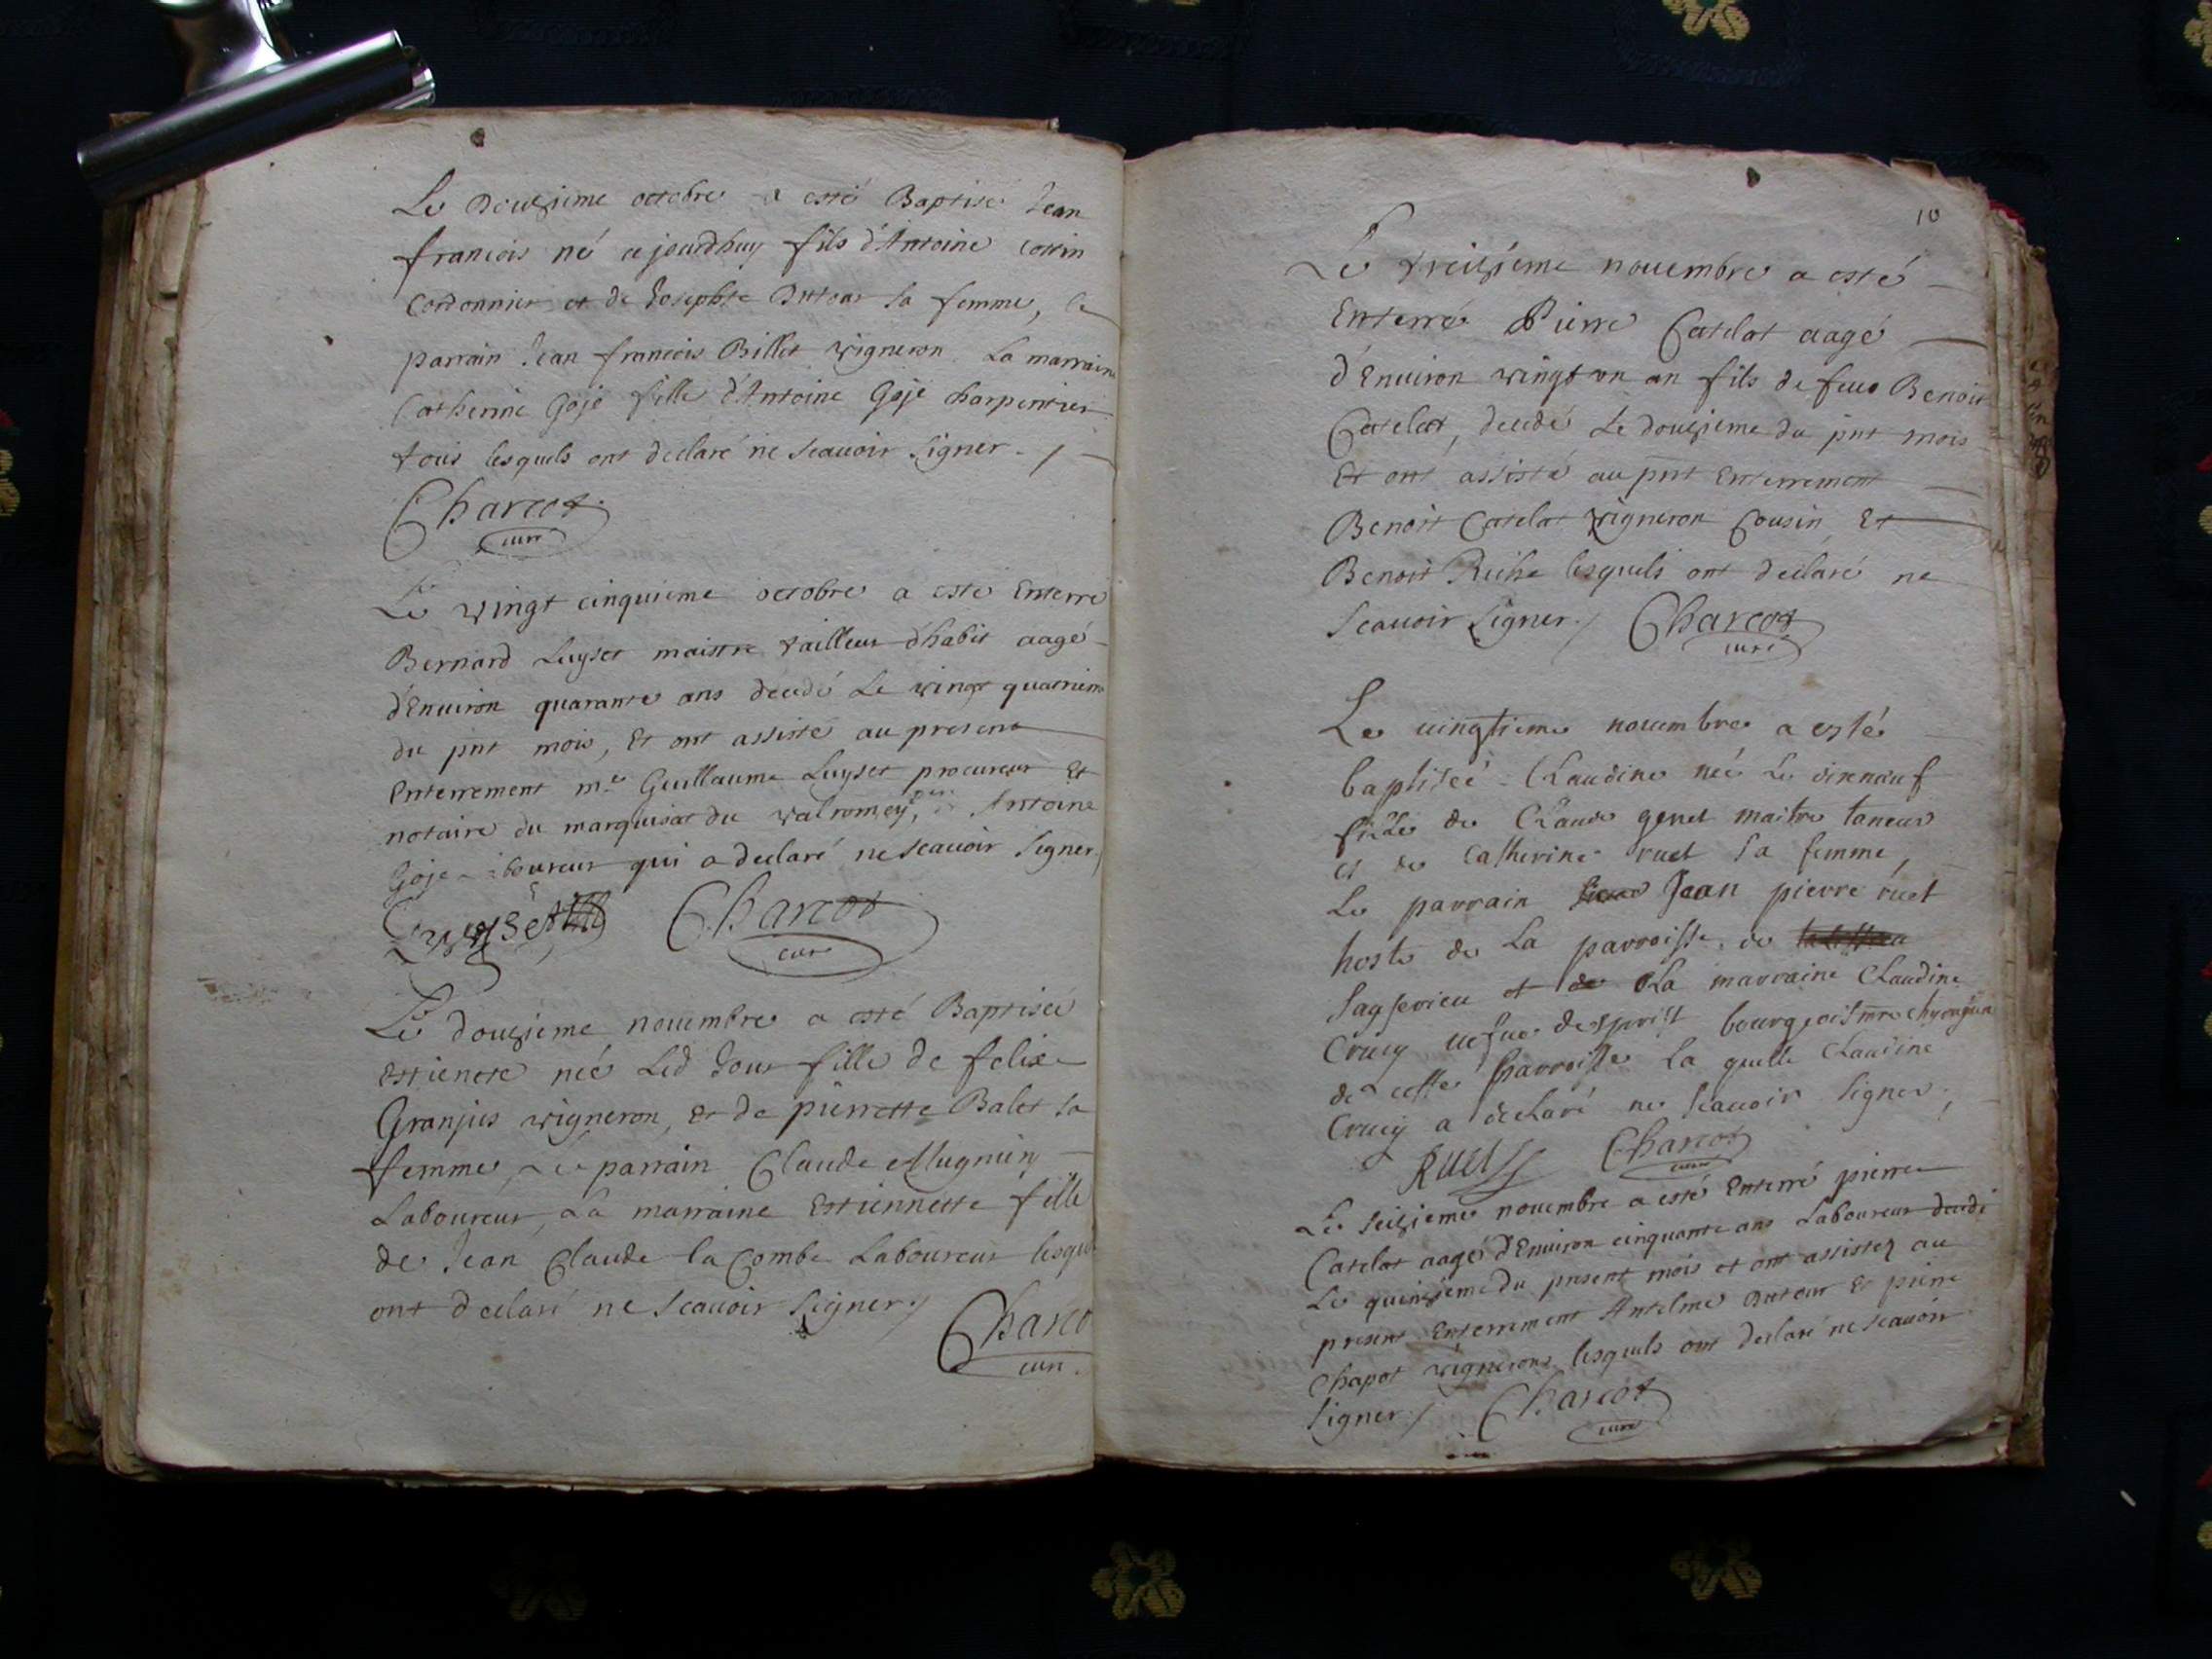 Le douzieme octobre a esté Baptisé Jean
francois né ce jourdhuy fils d'Antoine Cottin
Cordonnier et de Josephte Dutour sa femme, le
parrain Jean francois Billet vigneron La marraine
Catherine Gojé fille d'Antoine Gojé charpentier
tous lesquels ont declaré ne scauoir signer./
Charcot
curé
Le vingt cinquieme octobre a esté Enterré
Bernard Luyset maistre tailleur d'habit aagé
d'Enuiron quarante ans decedé Le vingt quatrieme
du pnt mois, Et ont assisté au present
Enterrement me Guillaume Luyset procureur Et
notaire du marquisat du valromey, Antoine
Goje laboureur qui a declaré ne scauoir signer/
Luyset Charcot
curé
Le douzieme nouembre a esté Baptisée
Estienete née Led Jour fille de felix
Granjus vigneron, Et de pierrette Balet sa
femme, Le parrain Claude Mugnier
Laboureur, La marraine Estiennette fille
de Jean Claude la Combe Laboureur lesqu
ont declaré ne scauoir signer./
Charco
curé
10
Le treizieme nouembre a esté
Enterré Pierre Catelat aagé
d'Enuiron vingt un an fils de feu Benoit
Catelat, decedé Le douzieme du pnt mois
Et ont assisté au pnt Enterrement
Benoit Catelat vigneron Cousin Et
Benoit Riche lesquels ont declaré ne
scauoir signer./ Charcot
curé
Le uingtieme nouembre a esté
baptiseé Claudine neé Le dixneuf
fille de Claude genet maitre taneur
et de Catherine ruet sa femme,
Le parrain Jean pierre ruet
hoste de La parroisse de
et de La marraine Claudine
Cruey uefue bourgeois mre chyrurgien
de cette parroisse La quelle Claudine
Cruey a declaré ne scauoir signer,
Ruet Charcot
curé
Le seizieme nouembre a esté Enterré pierre
Catelat aagé d'Enuiron cinquante ans Laboureur decedé
Le quinzieme du present mois et ont assistez au
present Enterrement Antelme Dutour Et pierre
Chapot vignerons lesquels ont declaré ne scauoir
signer./ Charcot
curé